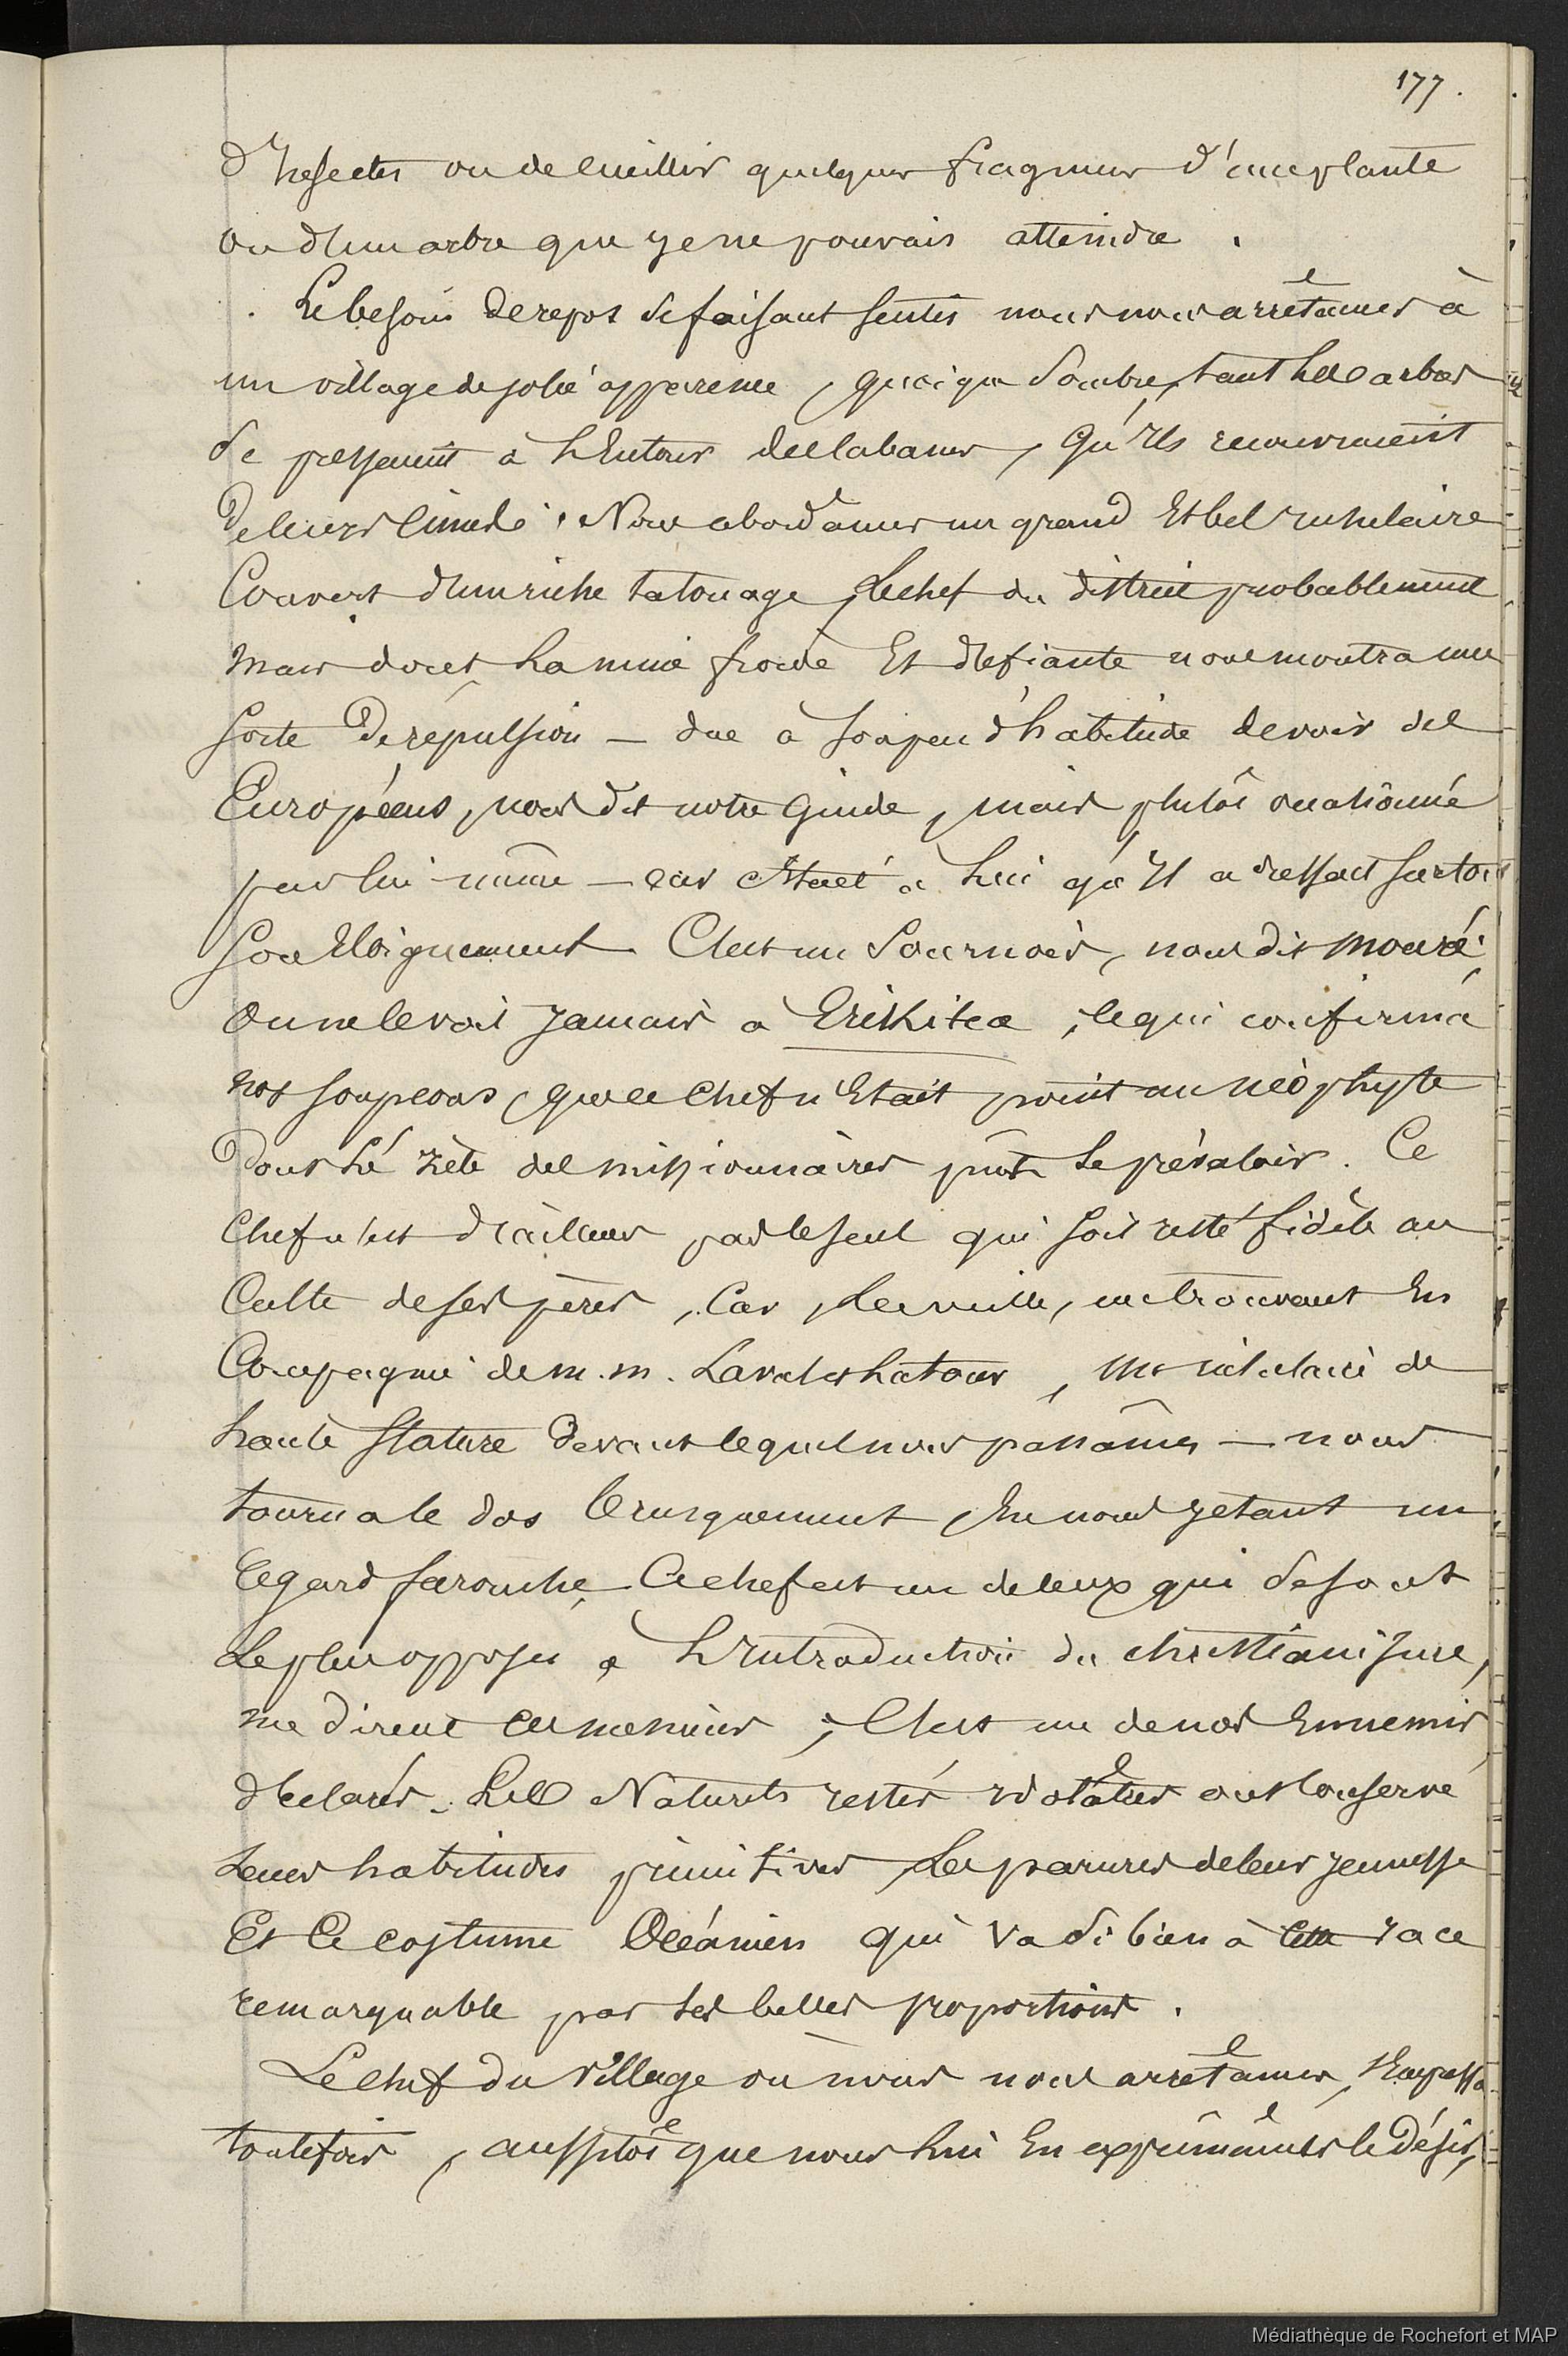 177.
d'Insectes ou de cueillir quelques fragmens d'une plante
ou d'un arbre que je ne pouvais atteindre.
Le besoin de repos se faisant sentir nous nous arrêtames à
un village de jolie apparence, quoique sombre, tant les arbres
se pressaient à l'Entour des cabanes, qu'Ils recouvraient
de leurs cimes. Nous abordâmes un grand Et bel insulaire
Couvert d'un riche tatouage, le chef du district probablement
mais dont la mine froide Et défiante nous montra une
sorte de répulsion — due à son peu d'habitude de voir des
Européens, nous dit notre Guide, mais plutôt occasionnée
par lui même — car c'Etait à lui qu'Il adressait surtout
son Eloignement. C'est un Sournois, nous dit mouré.
On ne le voit jamais à Erikitea, ce qui confirma
nos soupçons, que ce chef n'Etait point un néophyte
dont le zèle des missionnaires pût se prévaloir. Ce
chef n'est d'ailleurs pas le seul qui soit resté fidèle au
Culte de ses pères, Car, la veille, me trouvant En
Compagnie de m.m. Laval et Latour, un insulaire de
haute stature devant lequel nous passâmes — nous
tourna le dos brusquement, En nous jetant un
regard farouche. Ce chef est un de ceux qui se sont
le plus opposés à l'Introduction du christianisme,
me dirent ces messieurs ; C'est un de nos Ennemis
déclarés. Les Naturels restés idolâtres ont conservé
leurs habitudes primitives, les parures de leur jeunesse
Et ce costume Océanien qui va si bien à cette race
remarquable par ses belles proportions.
Le chef du village où nous nous arrêtames, s'Empressa
toutefois, aussitôt que nous lui En exprimâmes le désir,
Médiathèque de Rochefort et MAP